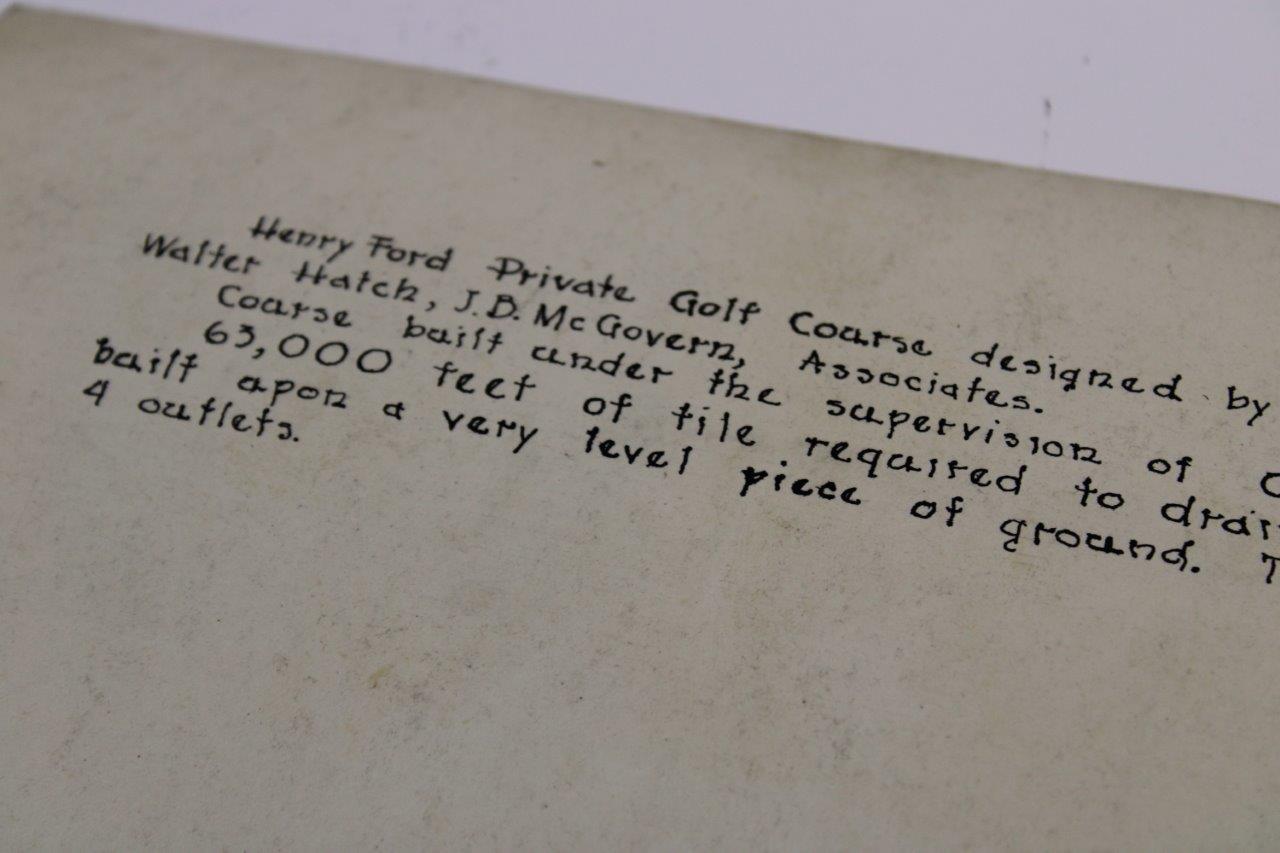 Henry Ford Private Golf Course designed by
Walter Hatch, J.B. McGovern, Associates.
Course built under the supervision of
63,000 feet of tile required to
built upon a very level piece of ground.
4 outlets.